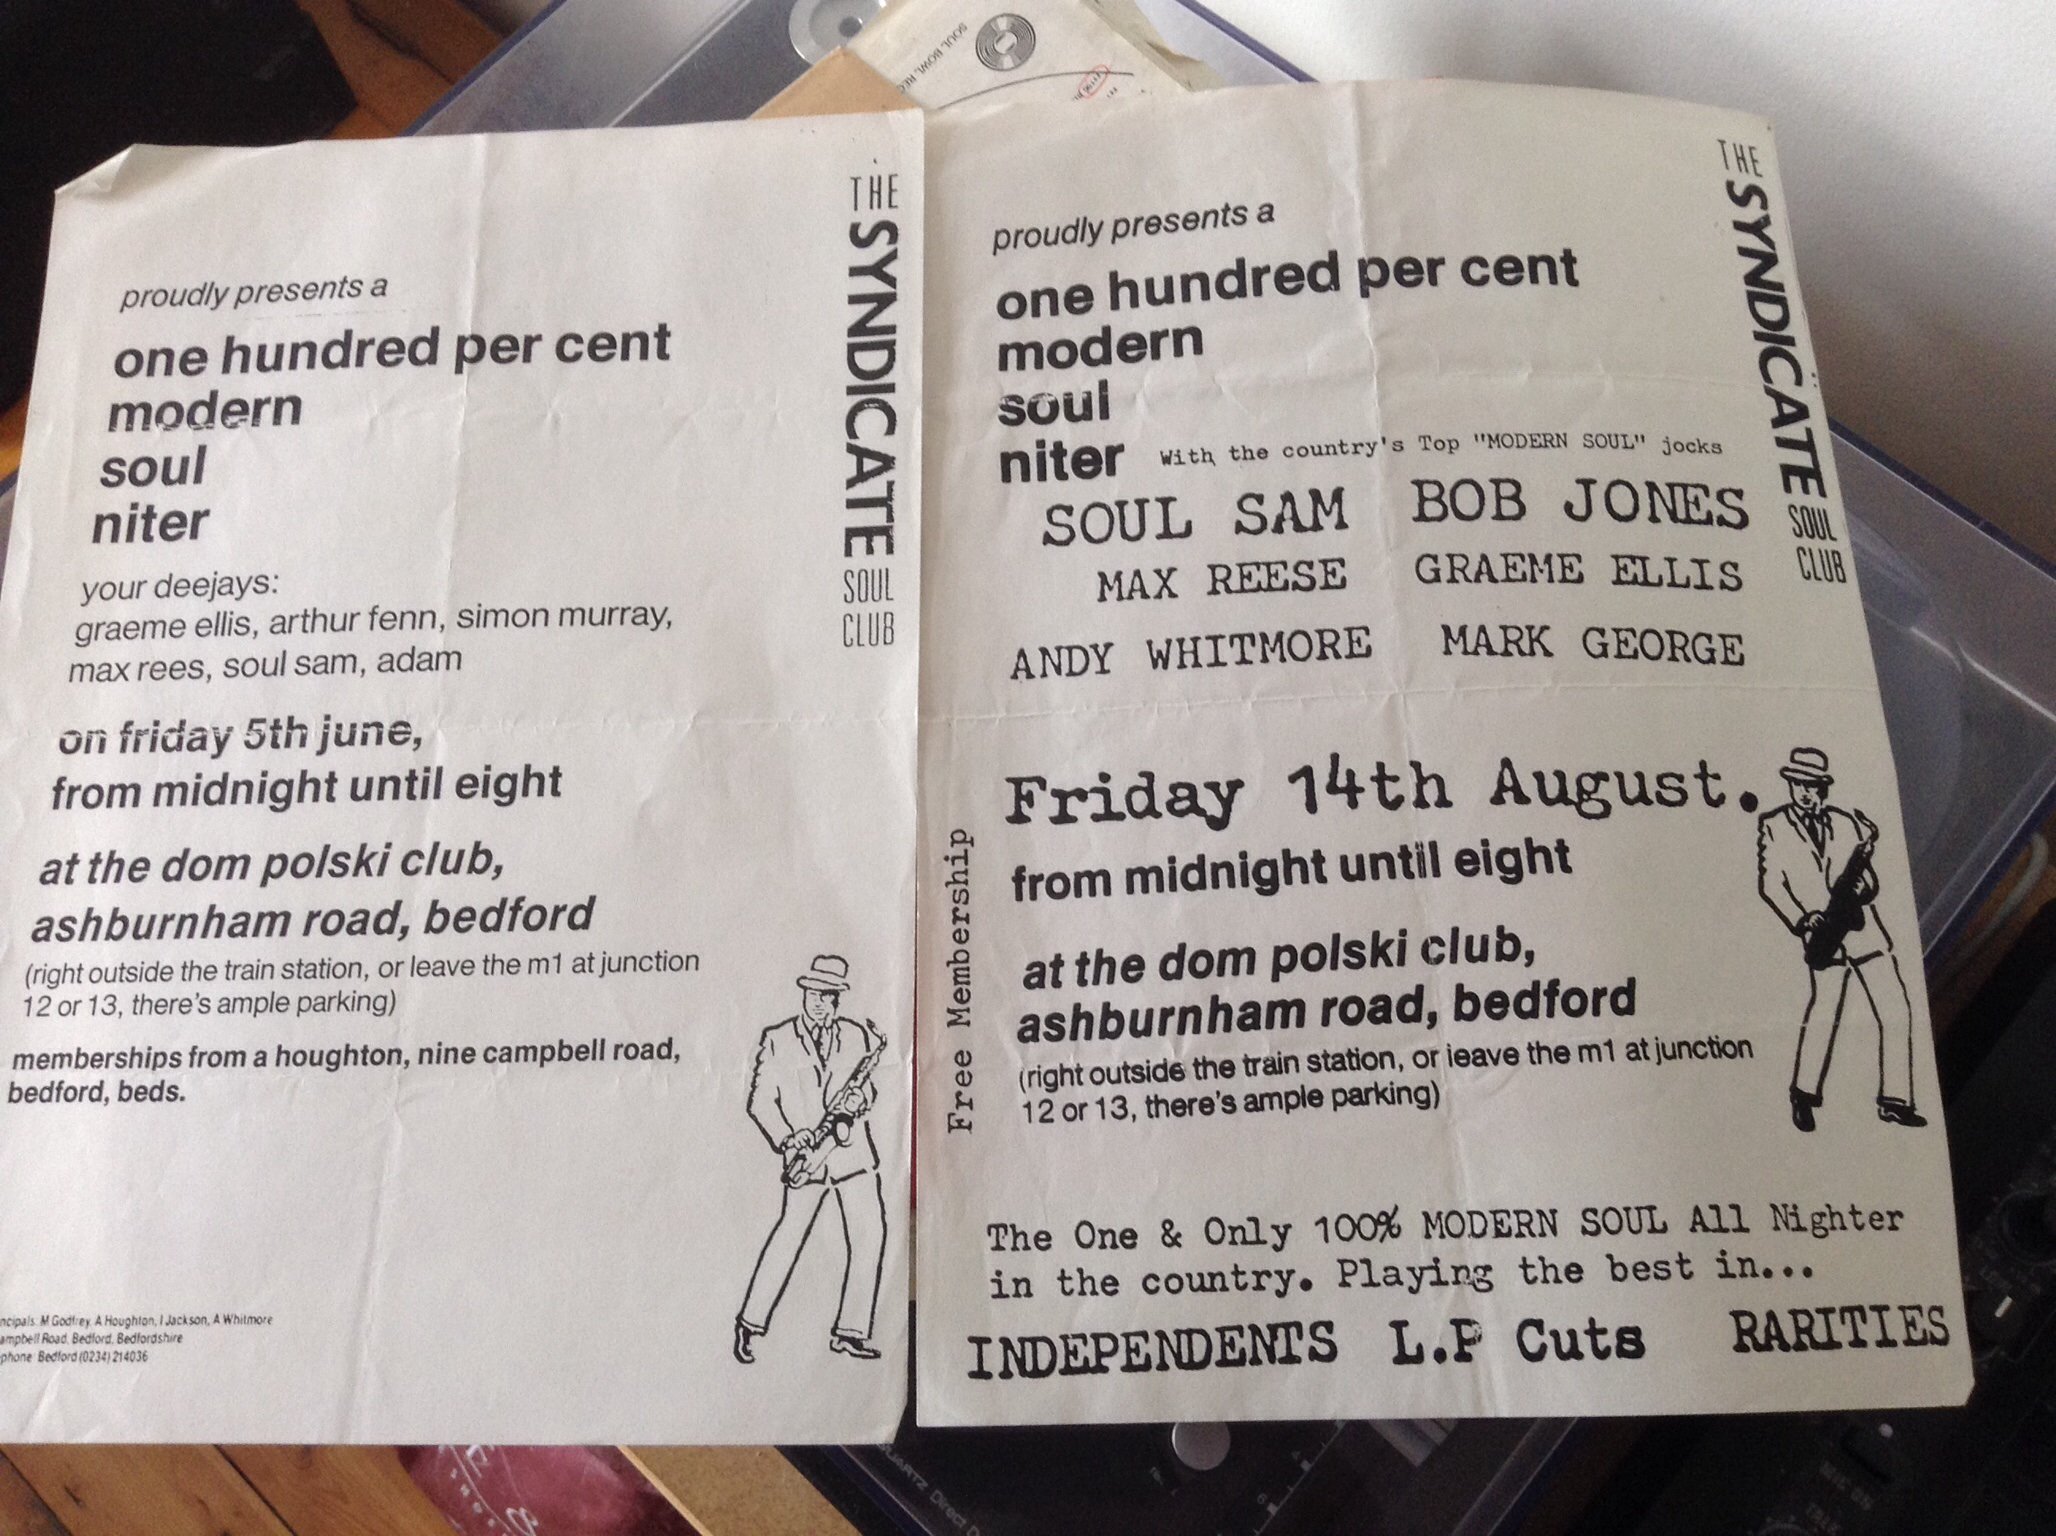 SOUL BOWL REC
THE SYNDICATE SOUL CLUB
proudly presents a
one hundred per cent
modern
soul
niter
your deejays:
graeme ellis, arthur fenn, simon murray,
max rees, soul sam, adam
on friday 5th june,
from midnight until eight
at the dom polski club,
ashburnham road, bedford
(right outside the train station, or leave the m1 at junction
12 or 13, there's ample parking)
memberships from a houghton, nine campbell road,
bedford, beds.
ncipals. M Godfrey, A Houghton, I Jackson, A Whitmore
ampbell Road, Bedford, Bedfordshire
phone: Bedford (0234) 214036
THE SYNDICATE SOUL CLUB
proudly presents a
one hundred per cent
modern
soul
niter With the country's Top "MODERN SOUL" jocks
SOUL SAM BOB JONES
MAX REESE GRAEME ELLIS
ANDY WHITMORE MARK GEORGE
Friday 14th August.
from midnight until eight
at the dom polski club,
ashburnham road, bedford
(right outside the train station, or leave the m1 at junction
12 or 13, there's ample parking)
Free Membership
The One & Only 100% MODERN SOUL All Nighter
in the country. Playing the best in...
INDEPENDENTS L.P Cuts RARITIES
QUARTZ Direct D